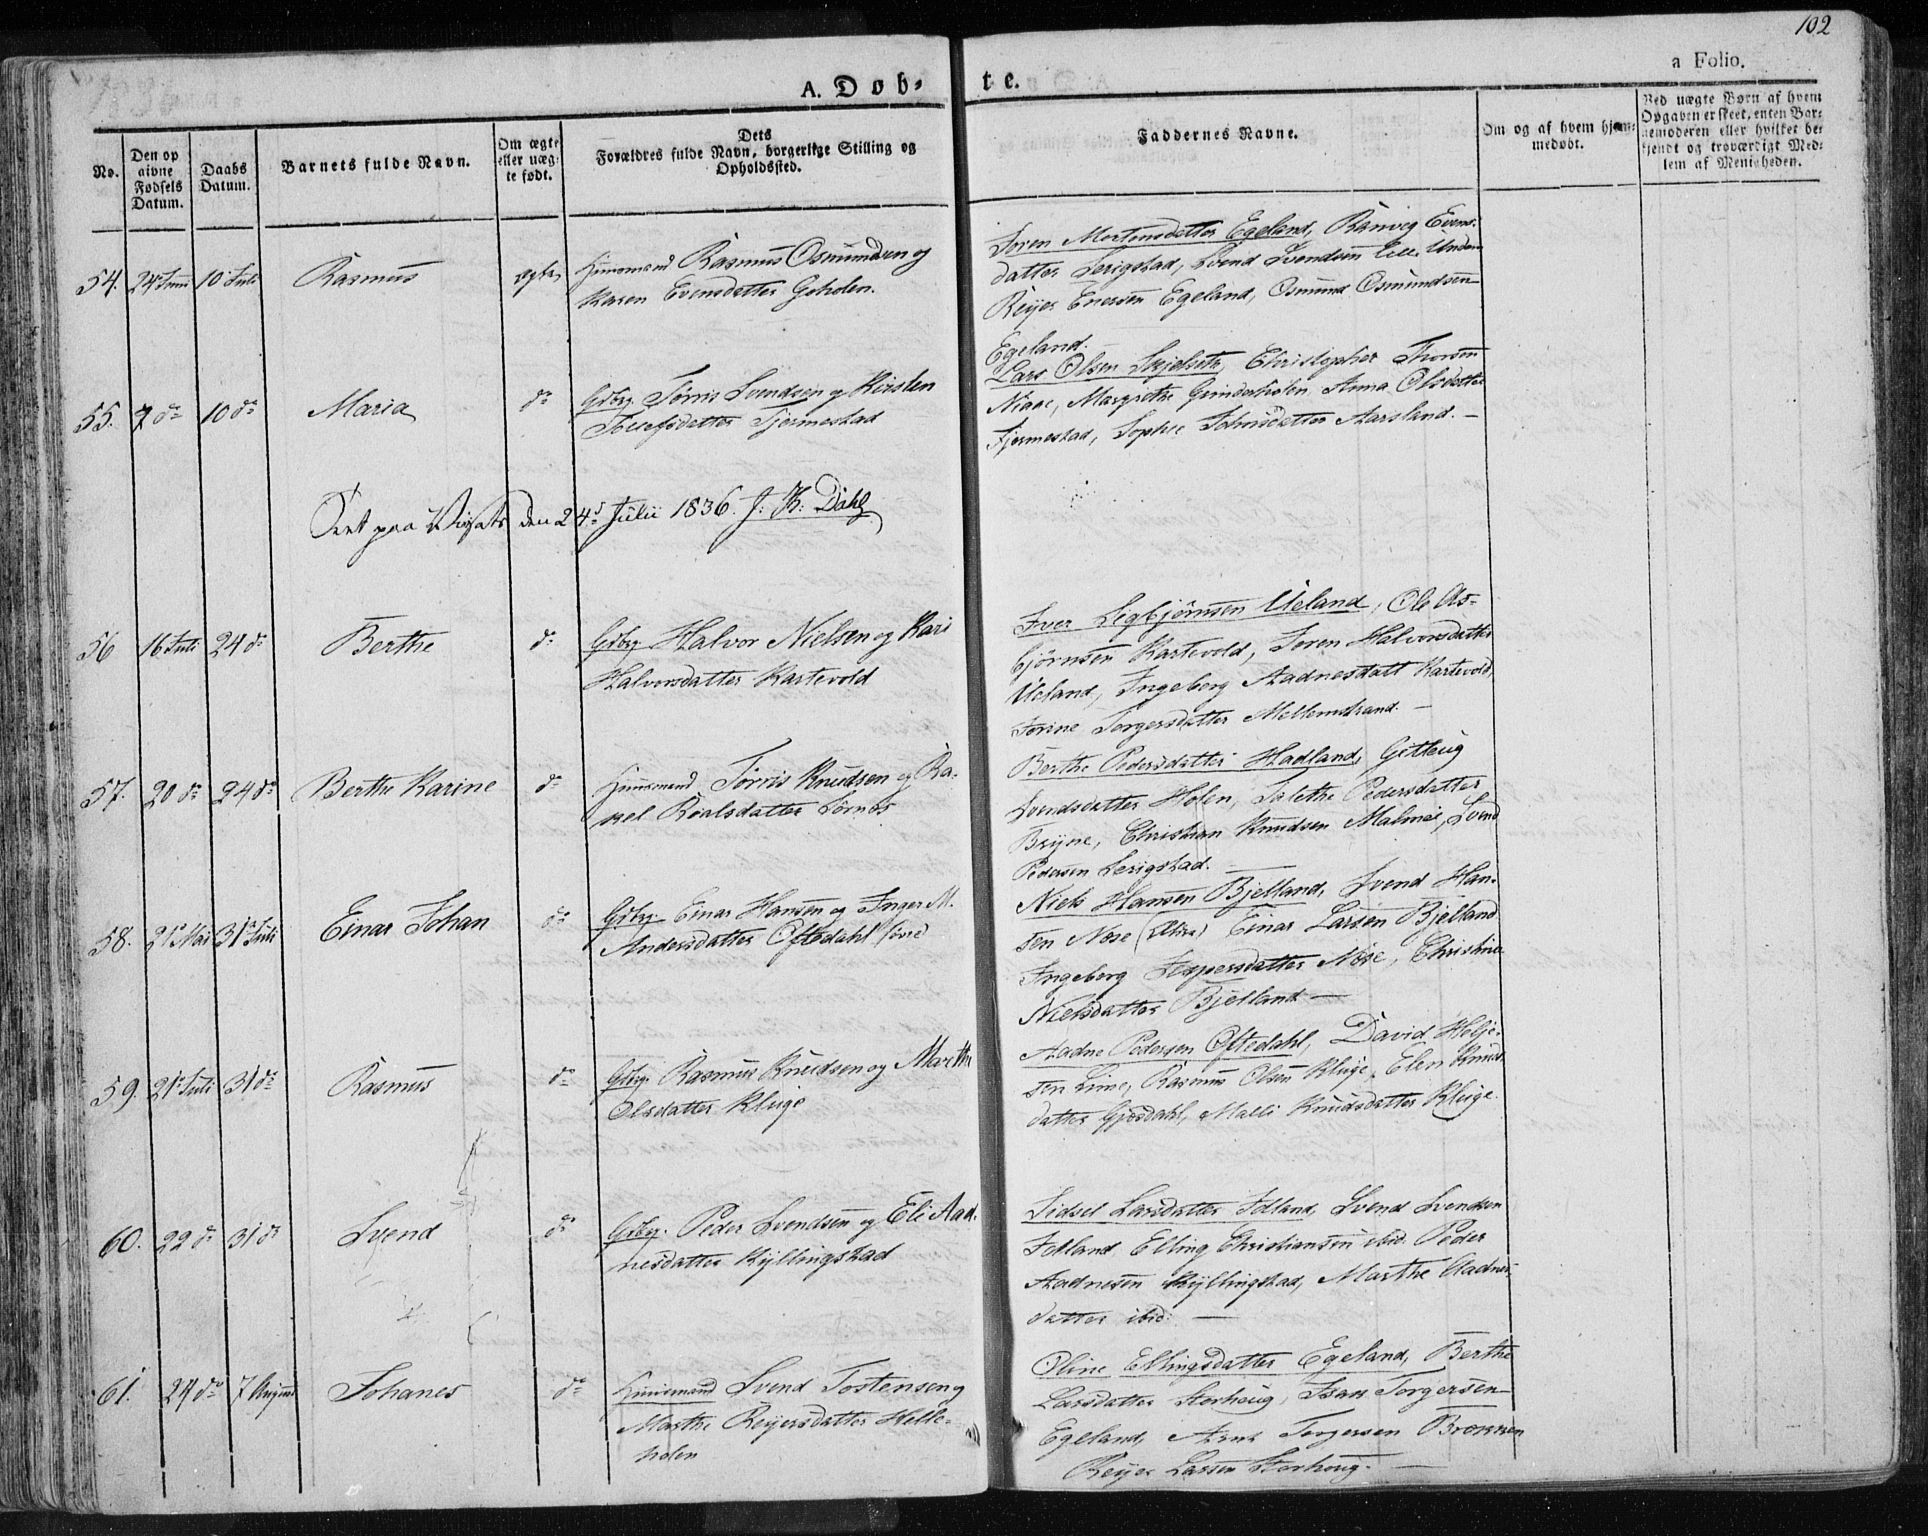 102
a Folio.
A. Døb-
te.
No.
Den op
givne
Fødsels
Datum.
Daabs
Datum.
Barnets fulde Navn.
Om ægte
eller uæg-
te født.
Dets
Forældres fulde Navn, borgerlige Stilling og
Opholdssted.
Faddernes Navne.
Om og af hvem hjem-
medøbt.
Ved uægte Børn af hvem
Opgaven er skeet, enten Bar-
nemoderen eller hvilket be-
kjendt og troværdigt Med-
lem af Menigheden.
54. 24 Juni 10 Juli Rasmus ægte Huusmand Rasmus Osmundsen og
Karen Evensdatter
Soren Mortensdatter Egeland, Ranveg Evens-
datter Lerigstad, Svend Svendsen
Reyer Enersen Egeland, Osmund Osmundsen
Egeland.
55. 7 do 10 do Maria do Gdbrg. Tørris Svendsen og Kirsten
Tollefsdatter Fjermestad
Lars Olsen Skjelsete, Christopher Thorsen
Niaae, Margrethe Grinderholen Anna Olsdatter
Fjermestad, Sophie Johnsdatter Aarsland. –
Seet paa Visitats den 24d Julii 1836. J. K. Dahl
56 16 Juli 24 do Berthe do Gdbrg Halvor Nielsen og Kari
Halvorsdatter Kartevold
Iver Segbjørnsen Ueland, Ole As-
bjørnsen Kartevold, Soren Halvorsdatter
Ueland, Ingeborg Aadnesdatt Kartevold,
Torine Torgersdatter Mellemstrand. –
57. 20 do 24 do Berthe Karine do Huusmand Tørris Knudsen og Ra-
kel Roalsdatter Sørnes
Berthe Pedersdatter Hadland, Gitleug
Svendsdatter Holen, Salethe Pedersdatter
Bryne, Christian Knudsen Malmei, Svend
Pedersen Lerigstad. –
58. 21 Mai 31 Juli Einar Johan do Gdbrg. Einar Hansen og Inger M.
Andersdatter Oftedahl
Niels Hansen Bjelland, Svend Han-
sen Nøse Einar Larsen Bjelland
Ingeborg Jespersdatter Nøse, Christine
Nielsdatter Bjelland –
59. 21 Juli 31 do Rasmus do Gdbrg. Rasmus Knudsen og Marthe
Olsdatter Kluge
Aadne Pedersen Oftedahl, David Helje-
sen Lime, Rasmus Olsen Kluge, Elen Knuds-
datter Gjesdahl, Malli Knudsdatter Kluge.
60. 22 do 31 do Svend do Gdbrg. Peder Svendsen og Eli Aad-
nesdatter Kyllingstad
Sidsel Larsdatter Fotland, Svend Svendsen
Fotland Elling Christiansen ibid: Peder
Aadnesen Kyllingstad, Marthe Aadnes-
datter ibid: –
61. 24 do 7 August Johanes do Huusmand Svend Tostensen og
Marthe Reyersdatter Helle-
holen
Oline Ellingsdatter Egeland, Berthe
Larsdatter Storhoug, Isak Torgersen
Egeland, Arne Torgersen Bronnen
Reyer Larsen Storhoug. –